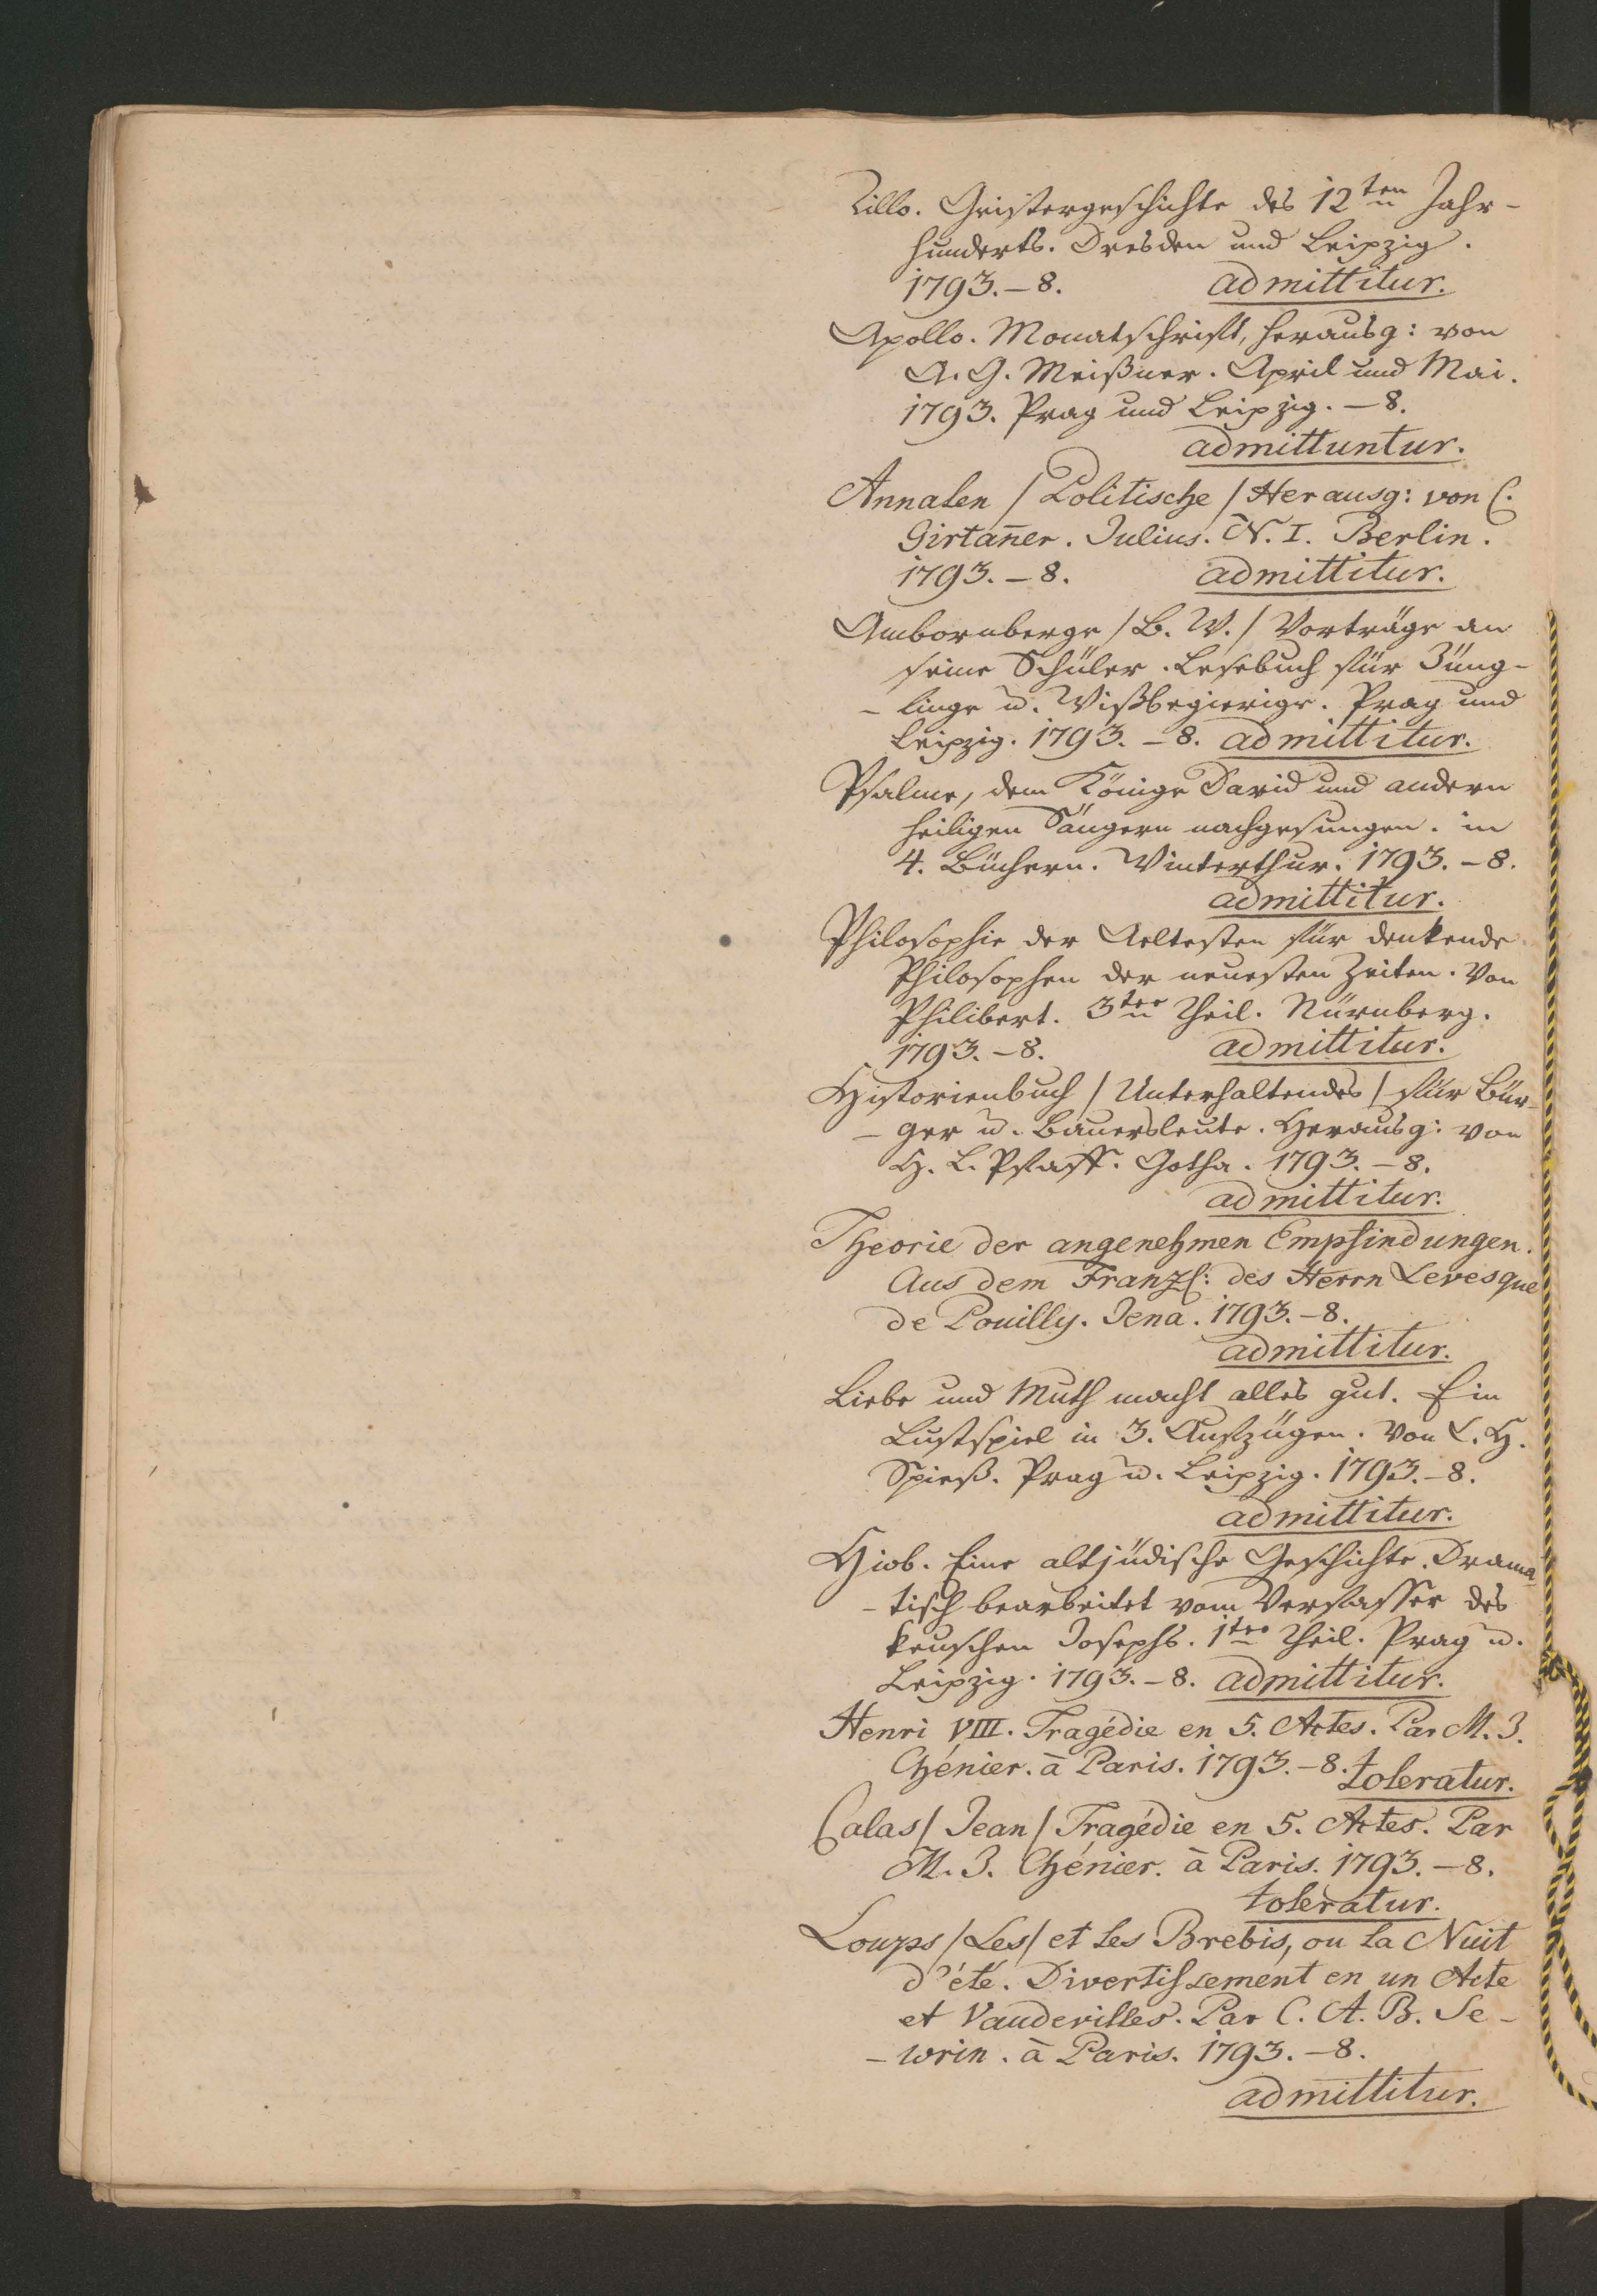 Lillo. Geistergeschichte des 12ten Jahr-
hunderts. Dresden und Leipzig.
1793.-8. admittitur.
Apollo. Monatschrift, herausg: von
A. G. Meißner. April und Mai.
1793. Prag und Leipzig. -8.
admittuntur.
Annalen /Politische/ Herausg: von C.
Girtañer. Julius. N. I. Berlin.
1793. -8. admittitur.
Ambornberge /B. W./ Vorträge an
seine Schüler. Lesebuch für Jüng-
-linge u. Wißbegierige. Prag und
Leipzig. 1793. -8. admittitur.
Psalme, dem Könige David und andern
heiligen Sängern nachgesungen. in
4. Büchern. Winterthur. 1793. -8.
admittitur.
Philosophie der Aeltesten für denkende
Philosophen der neuesten Zeiten. Von
Philibert. 3ter Theil. Nürnberg.
1793. -8. admittitur.
Historienbuch /Unterhaltendes/ für Bür-
-ger u. Bauersleute. Herausg: von
H. L. Pfaff. Gotha. 1793. -8.
admittitur.
Theorie der angenehmen Empfindungen.
Aus dem Franzs: des Herrn Levesque
de Pouilly. Jena. 1793. -8.
admittitur.
Liebe und Muth macht alles gut. Ein
Lustspiel in 3. Aufzügen. Von C. H.
Spieß. Prag u. Leipzig. 1793. -8.
admittitur.
Hiob. Eine altjüdische Geschichte. Drama-
-tisch bearbeitet vom Verfasser des
keuschen Josephs. 1ter Theil. Prag u.
Leipzig. 1793. -8. admittitur.
Henri VIII. Tragédie en 5. Actes. Par M. J.
Chénier. à Paris. 1793. -8. toleratur.
Calas /Jean/ Tragédie en 5. Actes. Par
M. J. Chénier. à Paris. 1793. -8.
toleratur.
Loups /Les/ et les Brebis, ou la Nuit
d'été. Divertissement en un Acte
et Vaudevilles. Par C. A. B. Se-
-wrin. à Paris. 1793. -8.
admittitur.